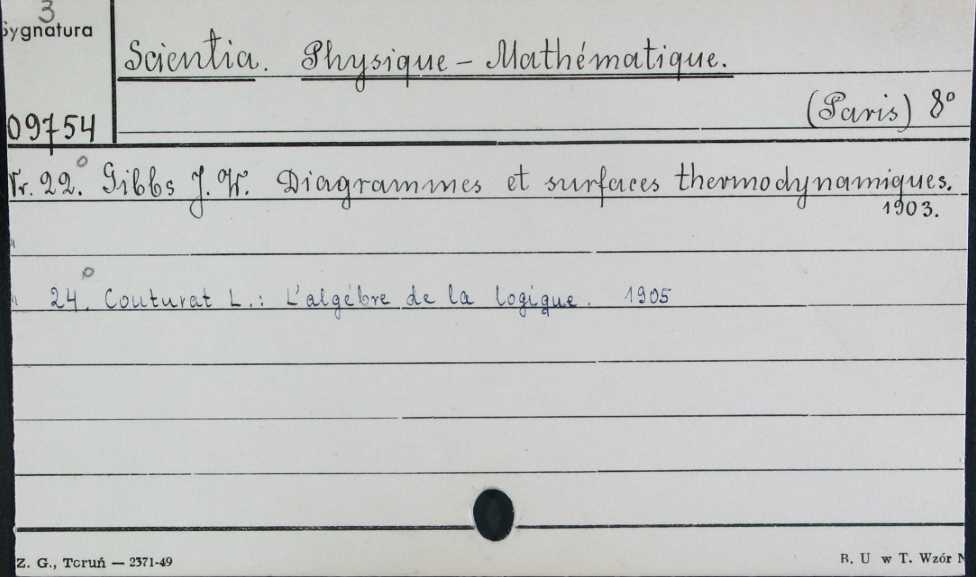 3
Sygnatura
Scientia. Physique - Mathématique.
(Paris) 8°
09754
Nr. 22.° Gibbs J. W. Diagrammes et surfaces thermodynamiques.
1903.
" 24.° Couturat L.: L'algèbre de la logique. 1905
Z. G., Toruń — 2371-49
B. U w T. Wzór N